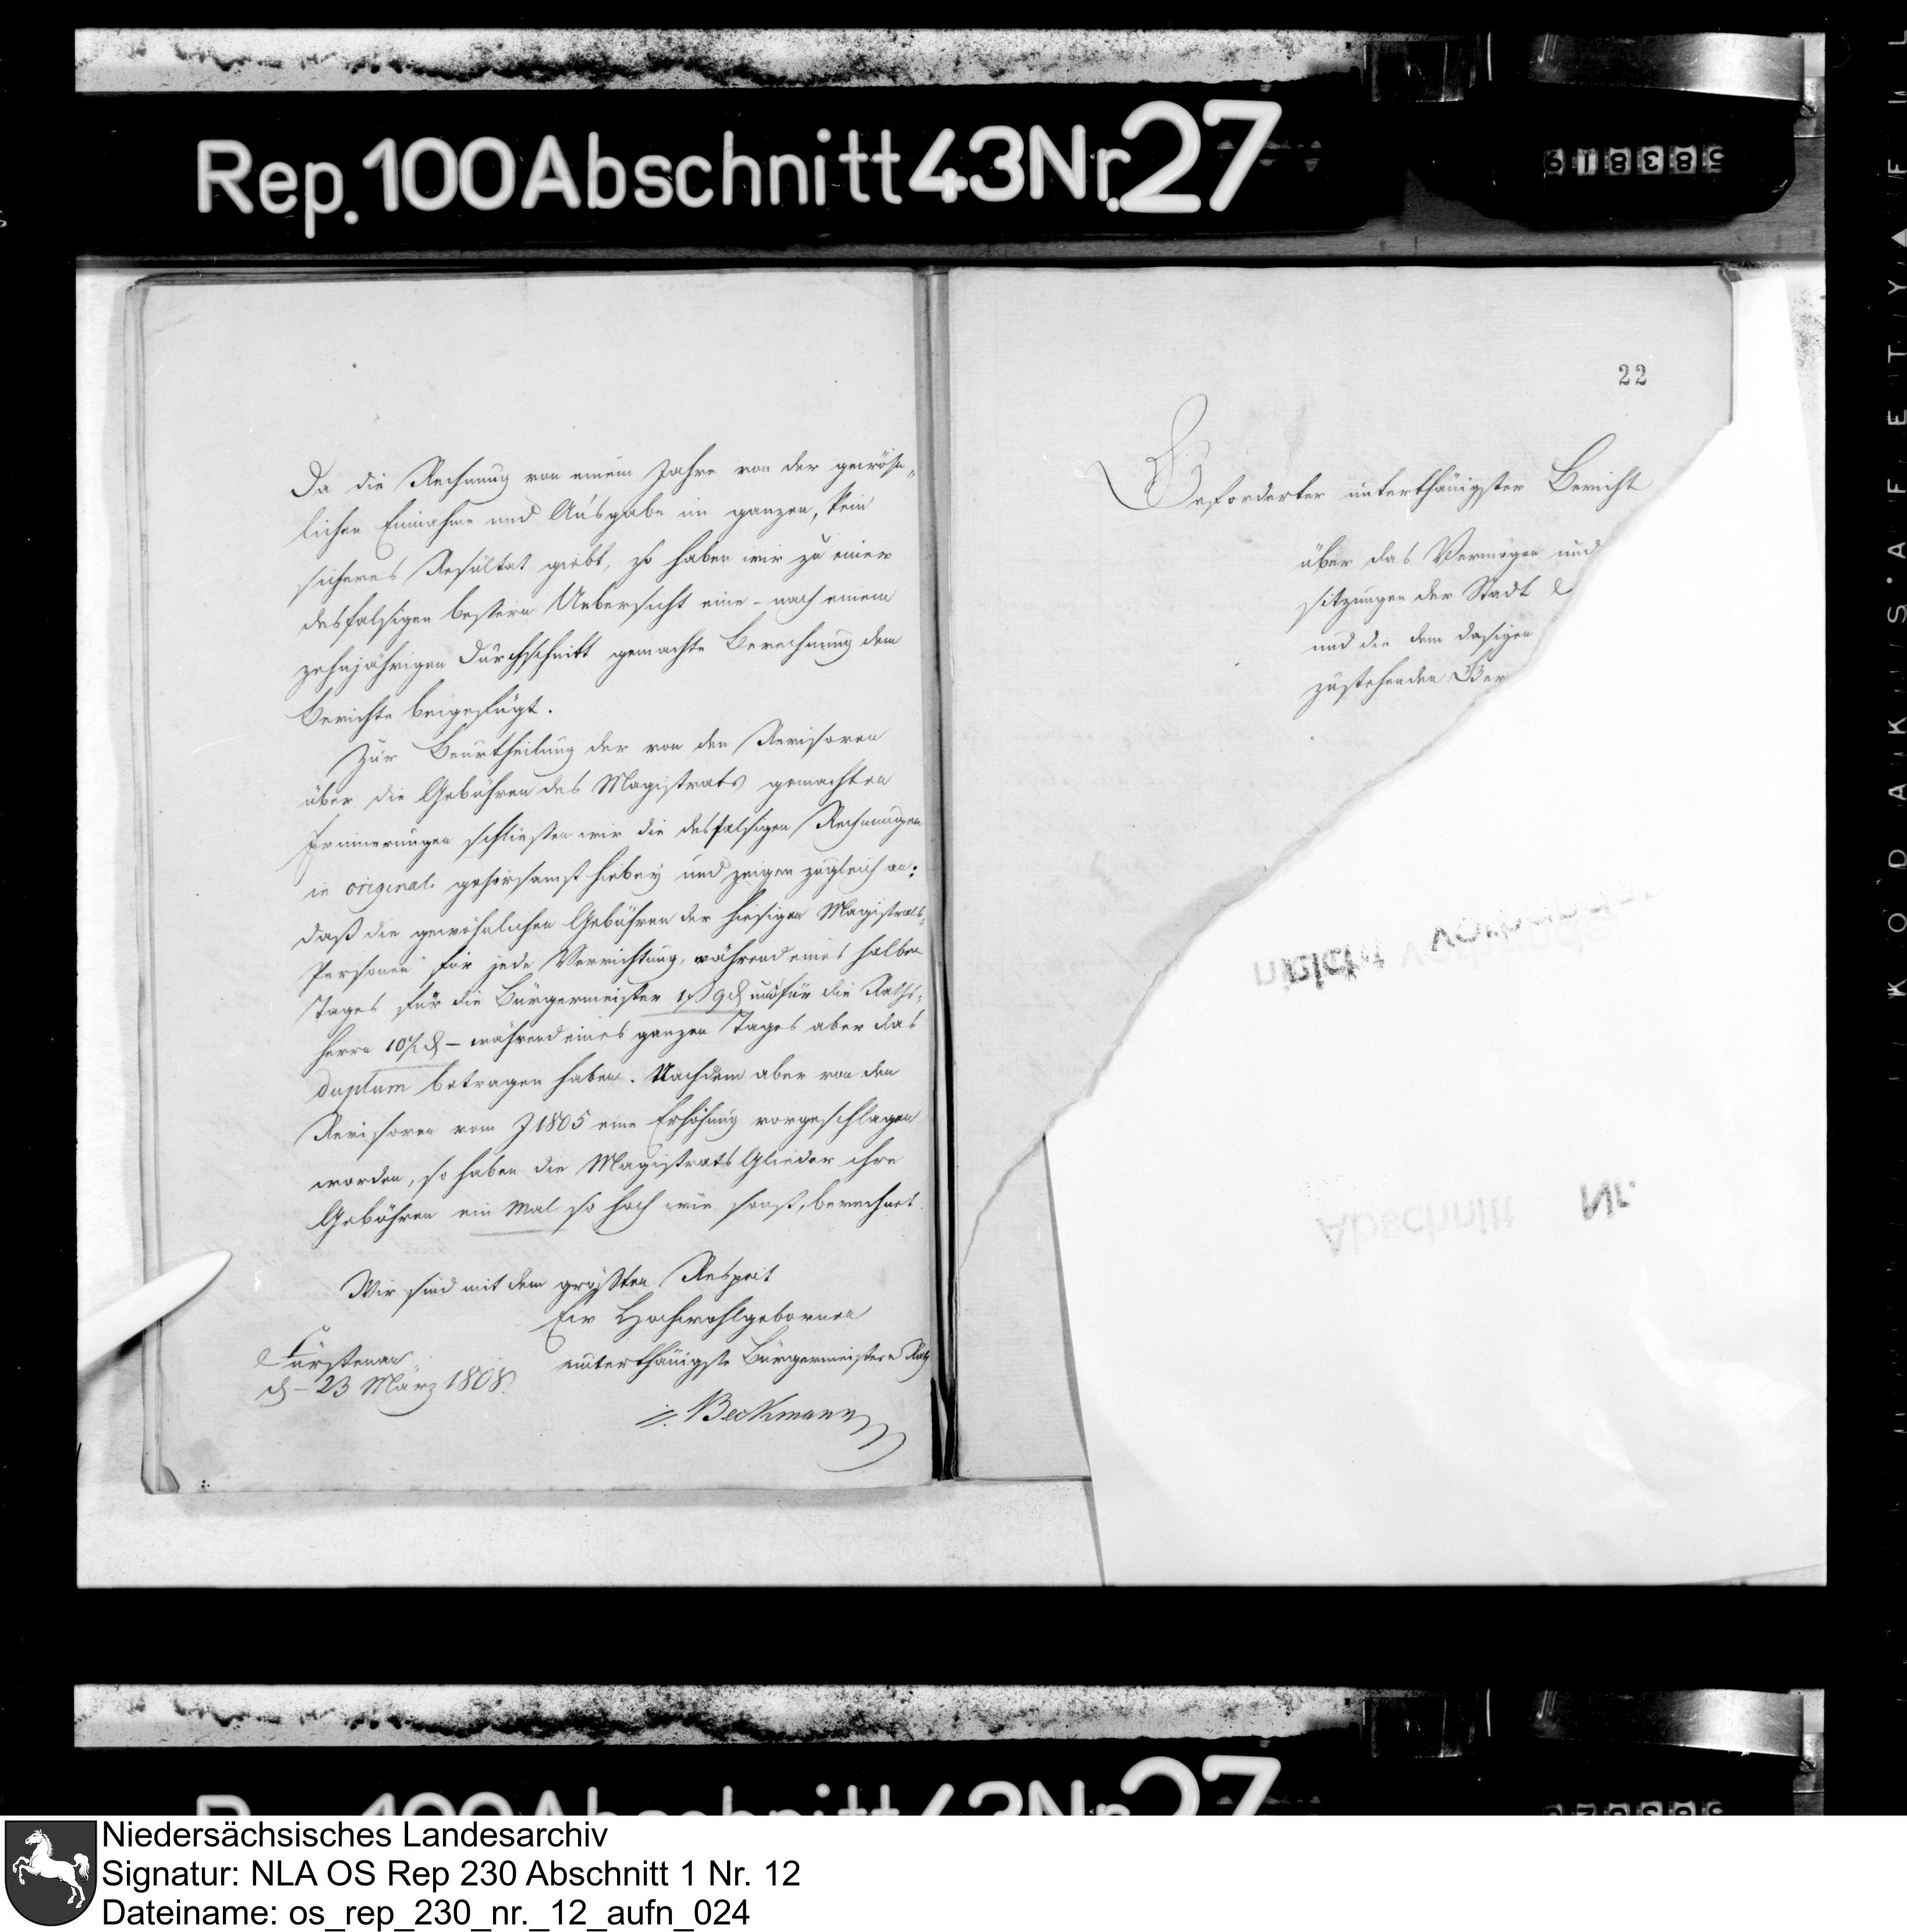 Rep. 100 Abschnitt 43 Nr. 27
583819
Da die Rechnung von einem Jahre von der gewöhn„
lichen Einnahme und Ausgabe im ganzen, kein
sicheres Resültat giebt, so haben wir zu einer
desfalsigen bessern Uebersicht eine - nach einem
zehnjährigen Durchschnitt gemachte Berechnung dem
Berichte beigefügt.
Zur Beurtheilung der von den Revisoren
über die Gebühren des Magistrats gemachten
Erinnerungen schließen wir die desfalsigen Rechnungen
in original. gehorsamst hiebey und zeigen zugleich an:
daß die gewöhnlichen Gebühren der hiesigen Magistrats„
Personen für jede Verrichtung, während eines halben
Tages für die Bürgermeister 1ß 9₰ und für die Raths„
herrn 10½ ₰ – während eines ganzen Tages aber das
duplum betragen haben. Nachdem aber von den
Revisoren vom J 1805 eine Erhöhung vorgeschlagen
worden, so haben die Magistrats Glieder ihre
Gebühren ein Mal so hoch wie sonst, berechnet.
Wir sind mit dem größten Respect
Ew Hochwohlgebornen
unterthänigste Bürgermeister u Rath
Fürstenau
d – 23 März 1808.
Beckmann
22
Erforderter unterthänigster Bericht
über das Vermögen und
sitzungen der Stadt
und die dem dasigen
zustehenden Ber
nicht
Abschnitt Nr.
KODAK SAFETY
Rep. 100 Abschnitt 43 Nr. 27
Niedersächsisches Landesarchiv
Signatur: NLA OS Rep 230 Abschnitt 1 Nr. 12
Dateiname: os_rep_230_nr._12_aufn_024